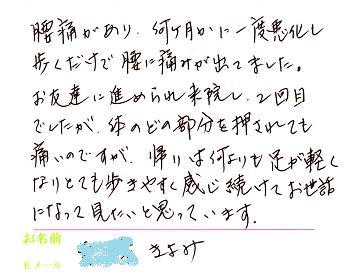 腰痛があり、何ケ月かに一度悪化し
歩くだけで腰に痛みが出てました。
お友達に進められ来院し、2回目
でしたが、体のどの部分を押されても
痛いのですが、帰りは何よりも足が軽く
なりとても歩きやすく感じ続けてお世話
になって見たいと思っています。
お名前
きよみ
Eメール